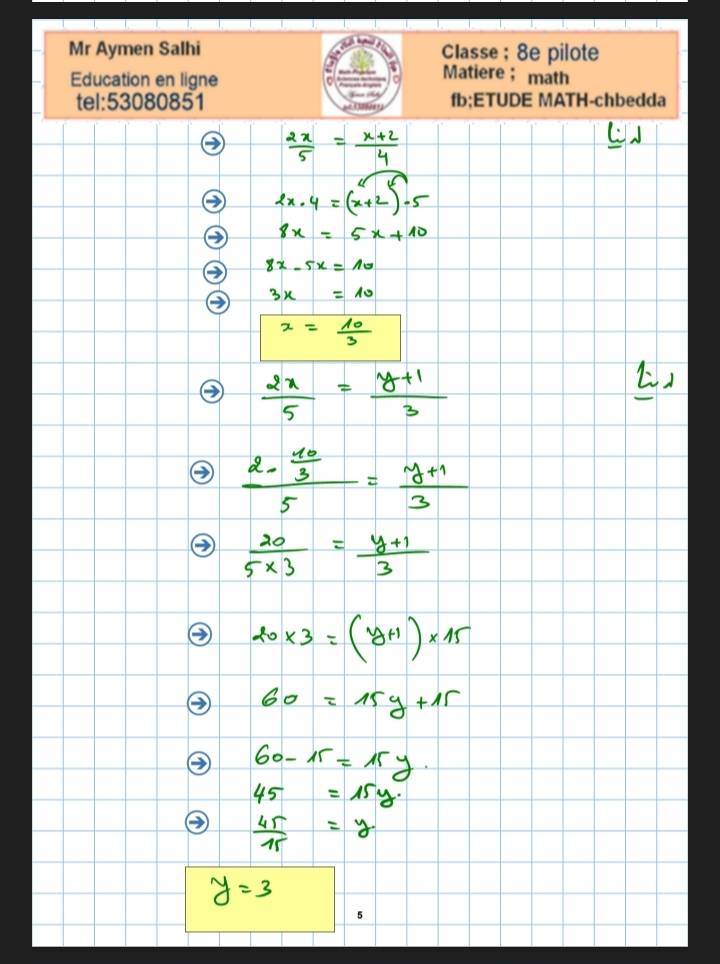 Mr Aymen Salhi
Education en ligne
tel:53080851
Classe ; 8e pilote
Matiere ; math
fb;ETUDE MATH-chbedda
لدينا
2x/5 = x+2/4
2x.4 = (x+2).5
8x = 5x+10
8x-5x = 10
3x = 10
x = 10/3
لدينا
2x/5 = y+1/3
2.10/3/5 = y+1/3
20/5x3 = y+1/3
20x3 = (y+1)x15
60 = 15y+15
60-15 = 15y.
45 = 15y.
45/15 = y.
y = 3
5